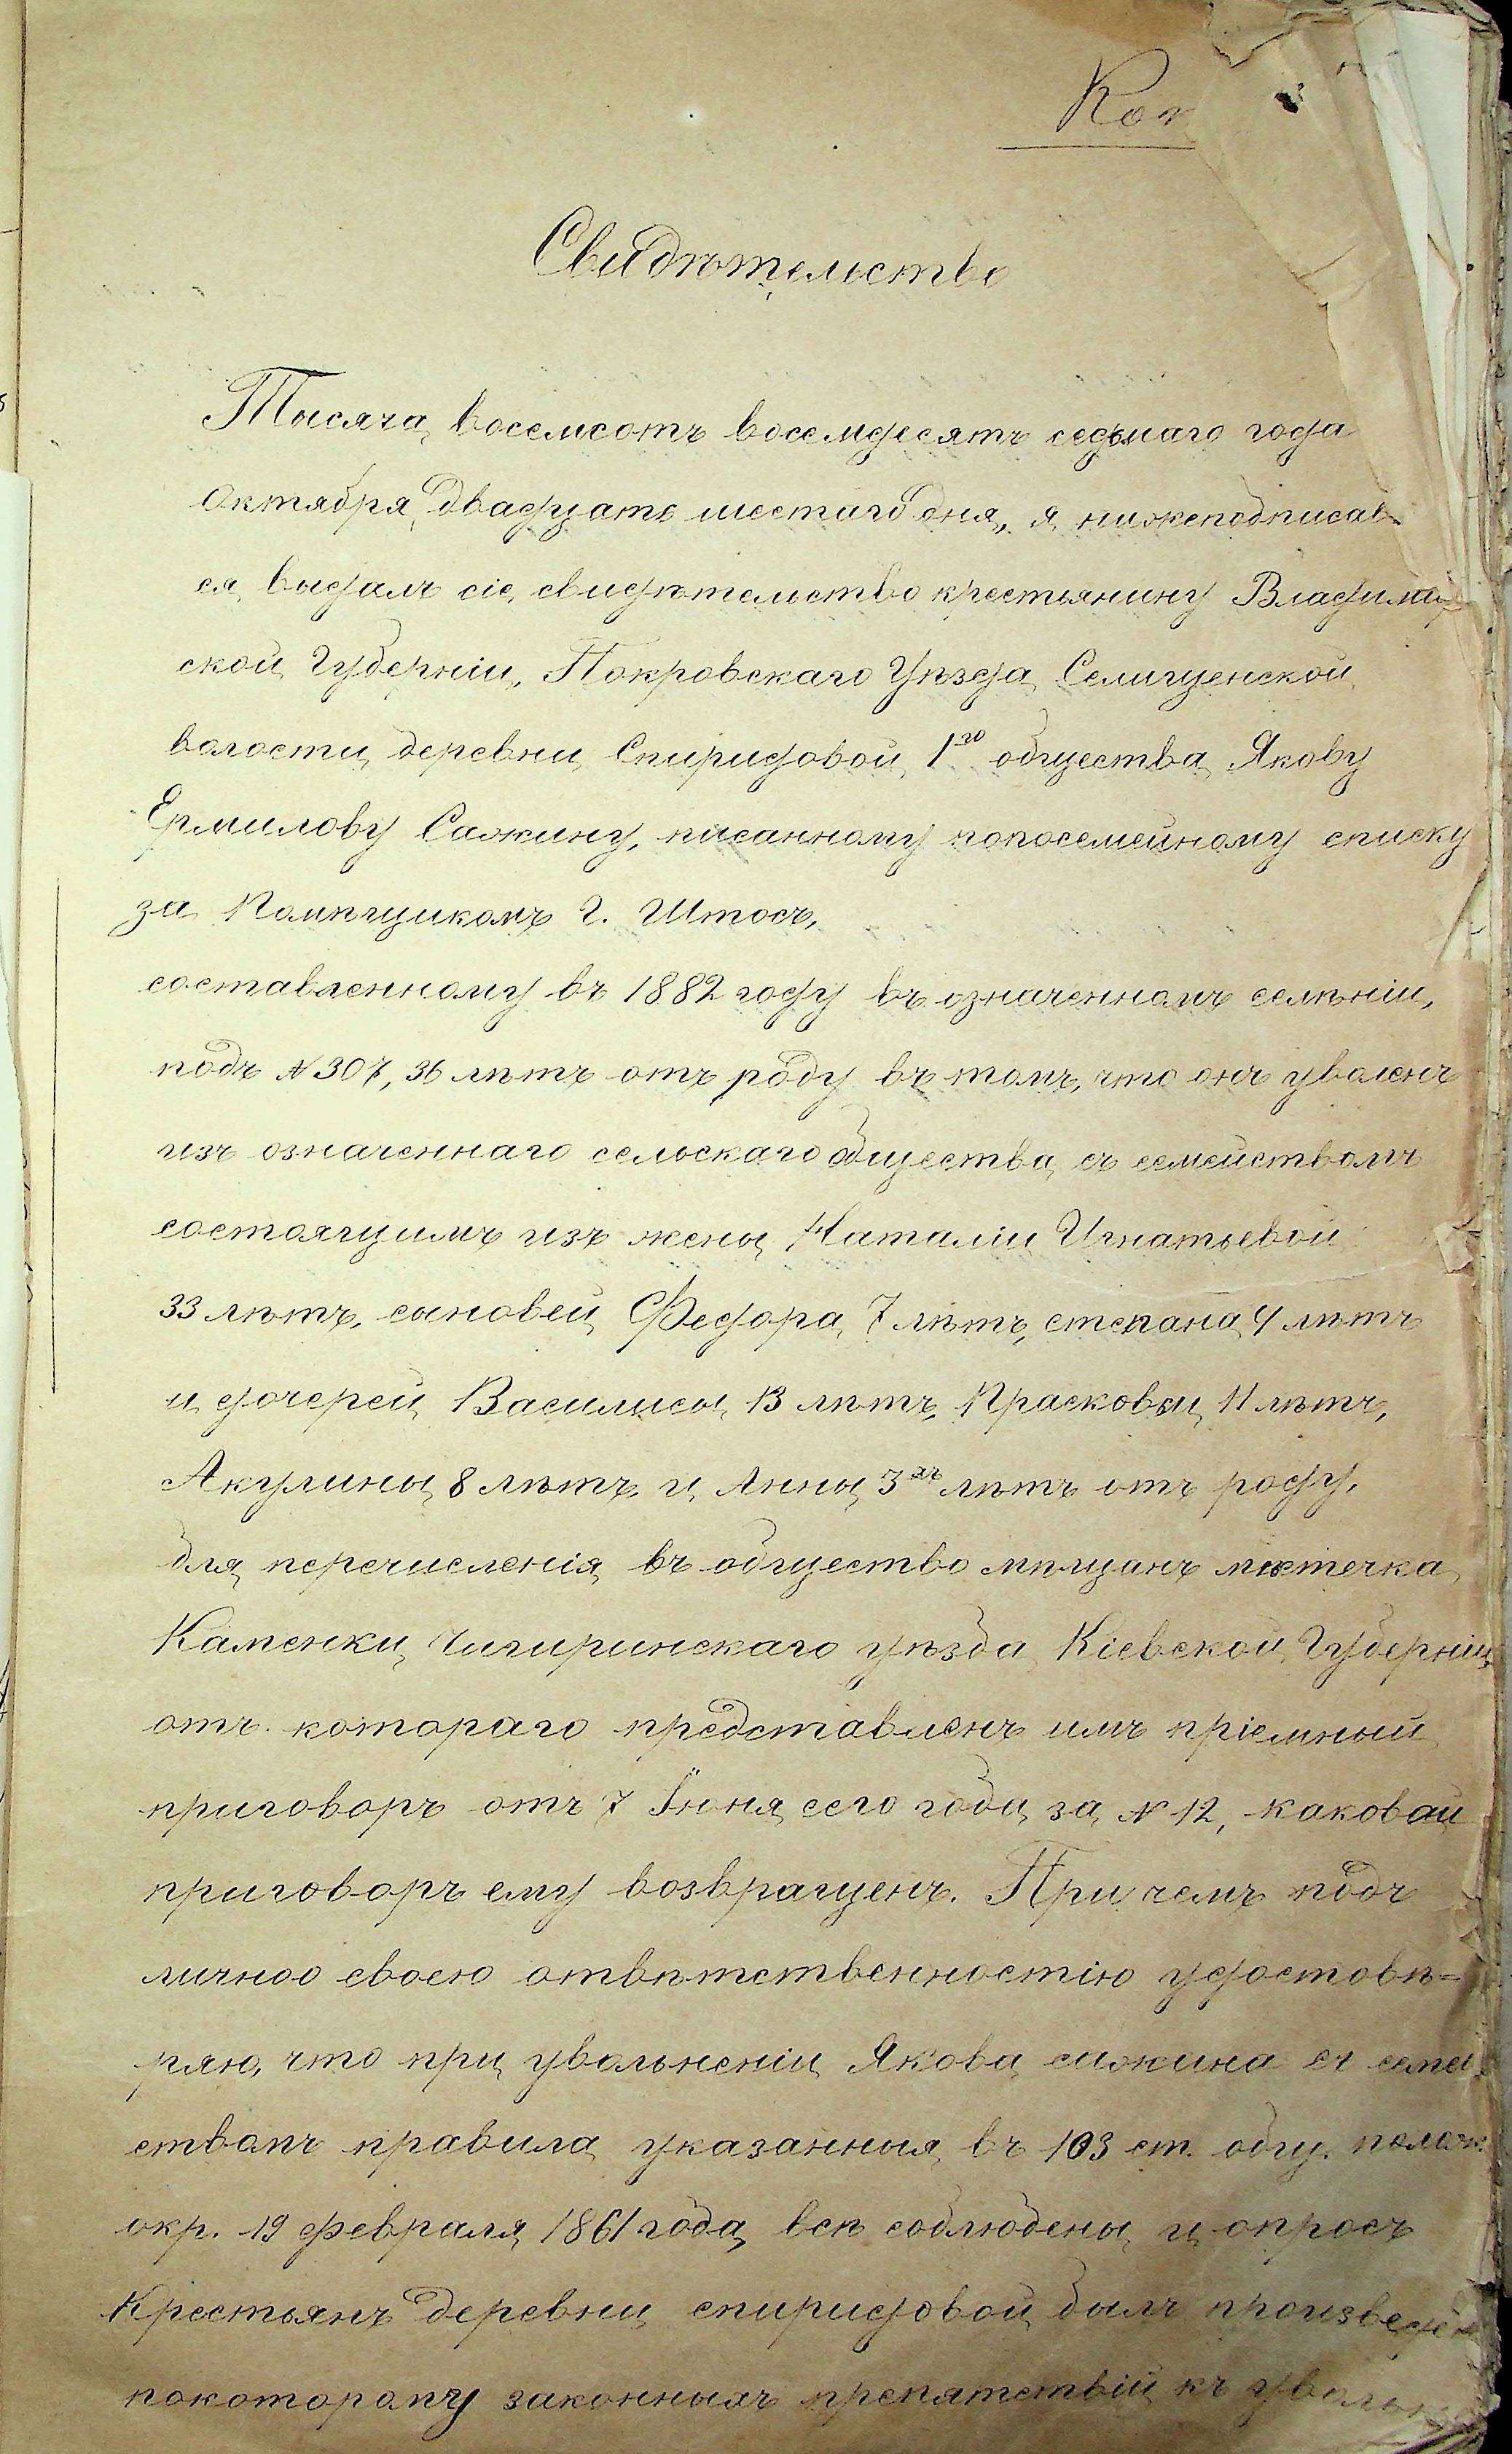 Коп
Свидѣтельство
Тысяча восемсотъ восемдесятъ седьмаго года
Октября двадцать шестаго дня, я нижеподписав
ся выдалъ сіе свидѣтельство крестьянину Владимір
ской Губерніи, Покровскаго Уѣзда Селищенской
волости деревни Спиридовой 1го общества Якову
Ермилову Сажину, писанному попосемейному списку
за Помѣщикомъ Г. Штосъ,
составленному въ 1882 году въ означенномъ селѣніи,
подъ №307, 36 лѣтъ отъ роду въ томъ, что онъ уволенъ
изъ означеннаго сельскаго общества съ семействомъ
состоящимъ изъ жены Наталіи Игнатьевой
33 лѣтъ, сыновей Федора 7 лѣтъ, степана 4 лѣтъ
и дочерей Василисы 13 лѣтъ, Прасковьи 11 лѣтъ,
Акулины 8 лѣтъ и Анны 3хъ лѣтъ отъ роду,
для перечисленія въ общество мѣщанъ мѣстечка
Каменки Чигиринскаго уѣзда Кіевской Губерніи
отъ котораго представленъ имъ пріемный
приговоръ отъ 7 Іюня сего года за № 12, каковой
приговоръ ему возвращенъ. При чемъ подъ
личною своею отвѣтственностію удостовѣ=
ряю, что при увольненіи Якова сажина съ семей
ствомъ правила указанныя въ 103 ст. общ. полож.
окр. 19 февраля 1861 года всѣ соблюдены и опросъ
Крестьянъ деревни спиридовой былъ произведен
покоторому законныхъ препятствій къ увольн